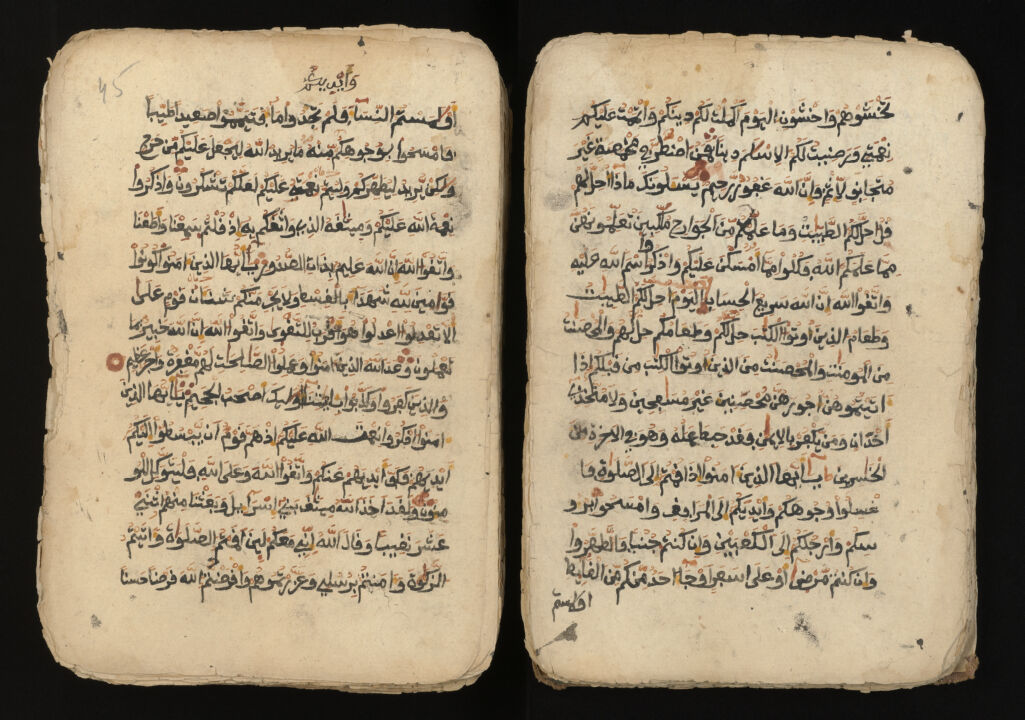 تخشوهم واخشون اليوم اكملت لكم دينكم واتممت عليكم
نعمتي ورضيت لكم الاسلام دينا فمن اضطر في مخمصة غير
متجانف لاثم فان الله غفور رحيم يسئلونك ماذا احل لهم
قل احل لكم الطيبت وما علمتم من الجوارح مكلبين تعلمونهن
مما علمكم الله فكلوا مما امسكن عليكم واذكروا اسم الله عليه
واتقوا الله ان الله سريع الحساب اليوم احل لكم الطيبت
وطعام الذين اوتوا الكتب حل لكم وطعامكم حل لهم والمحصنت
من المومنت والمحصنت من الذين اوتوا الكتب من قبلكم اذا
اتيتموهن اجورهن محصنين غير مسفحين ولا متخذي
اخدان ومن يكفر بالايمن فقد حبط عمله وهو في الاخرة من
الخسرين يايها الذين امنوا اذا قمتم الى الصلوة فا
غسلوا وجوهكم وايديكم الى المرافق وامسحوا برو
سكم وارجلكم الى الكعبين وان كنتم جنبا فاطهروا
وان كنتم مرضى او على سفر او جاء احد منكم من الغايط
اولمستم
45
اولمستم النساء فلم تجدوا ماء فتيمموا صعيدا طيبا
فامسحوا بوجوهكم وايديكم منه ما يريد الله ليجعل عليكم من حرج
ولكن يريد ليطهركم وليتم نعمته عليكم لعلكم تشكرون واذكروا
نعمة الله عليكم وميثقه الذي واثقكم به اذ قلتم سمعنا واطعنا
واتقوا الله ان الله عليم بذات الصدور يايها الذين امنوا كونوا
قوامين لله شهداء بالقسط ولا يجرمنكم شنئان قوم على
الا تعدلوا اعدلوا هو اقرب للتقوى واتقوا الله ان الله خبير بما
تعملون وعد الله الذين امنوا وعملوا الصلحت لهم مغفرة واجر عظيم
والذين كفروا وكذبوا بايتنا اوليك اصحب الجحيم يايها الذين
امنوا اذكروا نعمت الله عليكم اذ هم قوم ان يبسطوا اليكم
ايديهم فكف ايديهم عنكم واتقوا الله وعلى الله فليتوكل المو
منون ولقد اخذ الله ميثق بني اسراءيل وبعثنا منهم اثني
عشر نقيبا وقال الله اني معكم لين اقمتم الصلوة واتيتم
الزكوة وامنتم برسلي وعزرتموهم واقرضتم الله قرضا حسنا